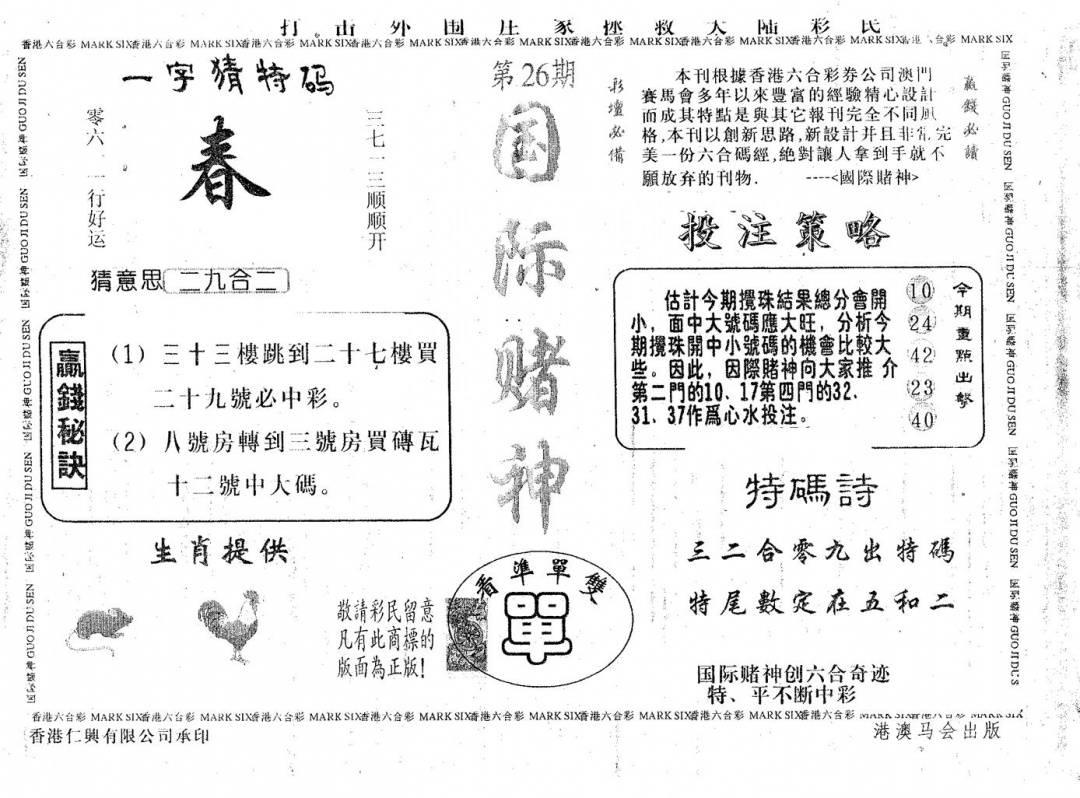 打击外围庄家拯救大陆彩民
香港六合彩 MARK SIX香港六合彩 MARK SIX香港六合彩 MARK SIX香港六合彩 MARK SIX香港六合彩 MARK SIX香港六合彩 MARK SIX香港六合彩 MARK SIX香港六合彩 MARK SIX香港六合彩 MARK SIX
一字猜特码
零六二一行好运
春
三七一三顺顺开
猜意思 二九合二
贏錢秘訣
(1) 三十三樓跳到二十七樓買
二十九號必中彩。
(2) 八號房轉到三號房買磚瓦
十二號中大碼。
生肖提供
第26期
国际赌神
敬請彩民留意
凡有此商標的
版面為正版!
看準單雙
單
彩壇必備
本刊根據香港六合彩券公司澳門
賽馬會多年以來豐富的經驗精心設計
而成其特點是與其它報刊完全不同風
格,本刊以創新思路,新設計并且非常完
美一份六合碼經,絶對讓人拿到手就不
願放弃的刊物. ----<國際賭神>
贏錢必讀
投注策略
估計今期攪珠結果總分會開
小，面中大號碼應大旺，分析今
期攪珠開中小號碼的機會比較大
些。因此，因際賭神向大家推介
第二門的10、17第四門的32、
31、37作爲心水投注。
10
24
42
23
40
今期重點出擊
特碼詩
三二合零九出特碼
特尾數定在五和二
国际赌神创六合奇迹
特、平不断中彩
香港六合彩 MARK SIX香港六合彩 MARK SIX香港六合彩 MARK SIX香港六合彩 MARK SIX香港六合彩 MARK SIX香港六合彩 MARK SIX香港六合彩 MARK SIX香港六合彩 MARK SIX香港六合彩 MARK SIX
香港仁興有限公司承印
港澳马会出版